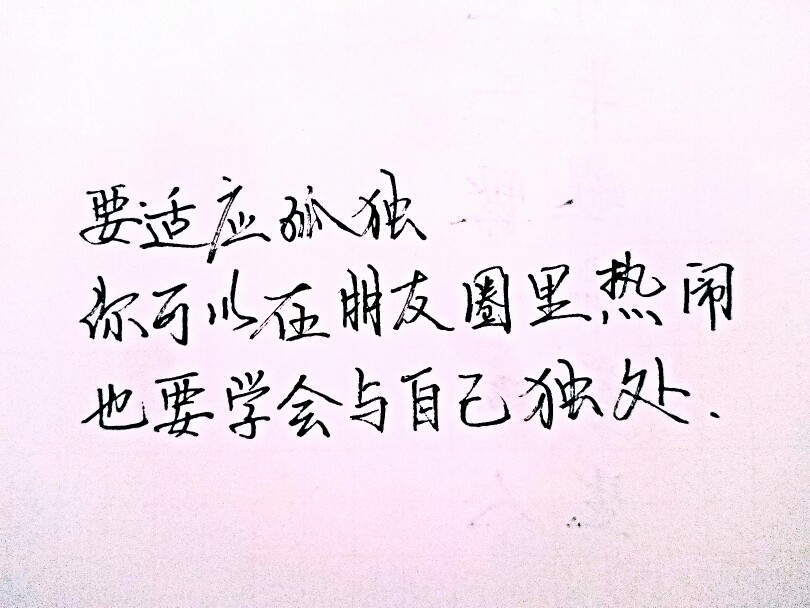 要适应孤独
你可以在朋友圈里热闹
也要学会与自己独处.